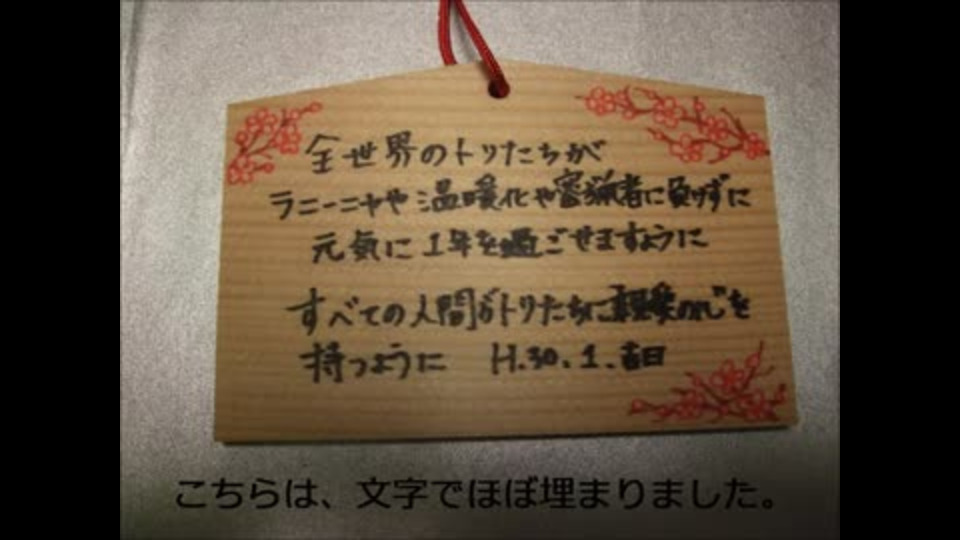 全世界のトリたちが
ラニーニャや温暖化や密猟者に負けずに
元気に1年を過ごせますように
すべての人間がトリたちに親愛の心を
持つように H.30.1.吉日
こちらは、文字でほぼ埋まりました。